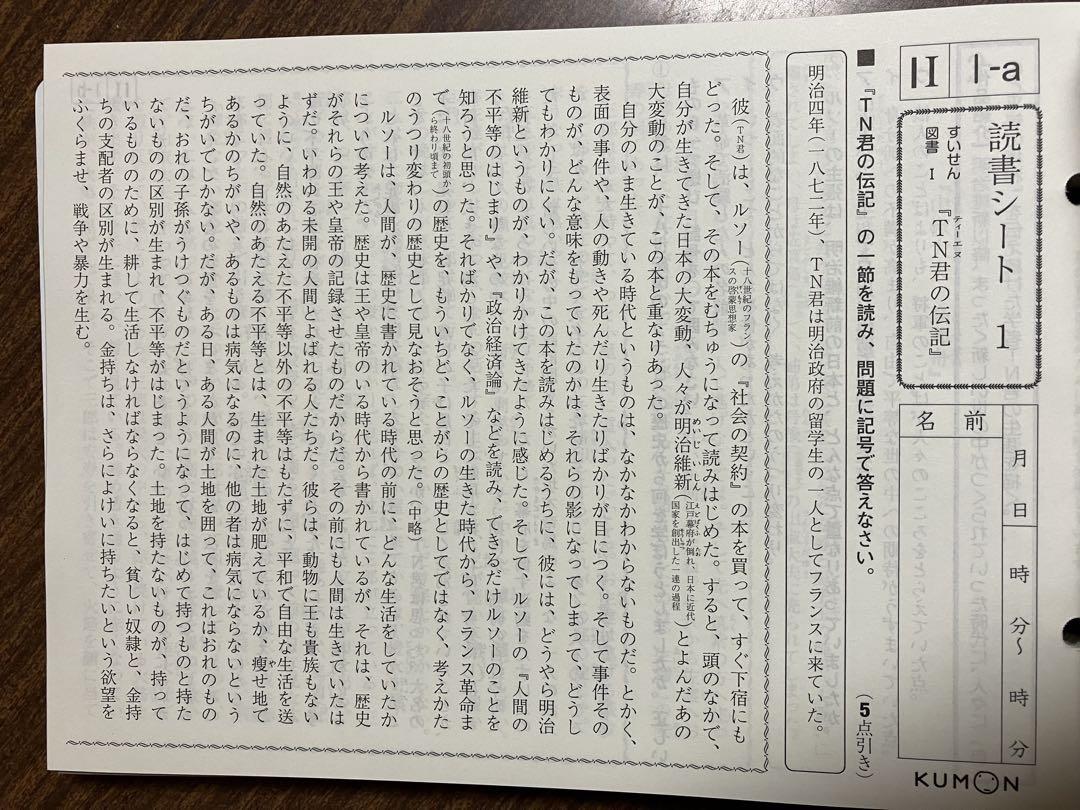 II
I-a
読書シート 1
すいせん図書 I 『TN君の伝記』
ティーエヌ
名前
月 日
時 分〜 時 分
KUMON
■『TN君の伝記』の一節を読み、問題に記号で答えなさい。 (5点引き)
明治四年(一八七二年)、TN君は明治政府の留学生の一人としてフランスに来ていた。
彼(TN君)は、ルソー(十八世紀のフランスの啓蒙思想家)の『社会の契約』の本を買って、すぐ下宿にも
どった。そして、その本をむちゅうになって読みはじめた。すると、頭のなかで、
自分が生きてきた日本の大変動、人々が明治維新(江戸幕府が倒れ、日本に近代国家を創出した一連の過程)とよんだあの
大変動のことが、この本と重なりあった。
自分のいま生きている時代というものは、なかなかわからないものだ。とかく、
表面の事件や、人の動きや死んだり生きたりばかりが目につく。そして事件その
ものが、どんな意味をもっていたのかは、それらの影になってしまって、どうし
てもわかりにくい。だが、この本を読みはじめるうちに、彼には、どうやら明治
維新というものが、わかりかけてきたように感じた。そして、ルソーの『人間の
不平等のはじまり』や、『政治経済論』などを読み、できるだけルソーのことを
知ろうと思った。そればかりでなく、ルソーの生きた時代から、フランス革命ま
で(十八世紀の初頭から終わり頃まで)の歴史を、もういちど、ことがらの歴史としてではなく、考えかた
のうつり変わりの歴史として見なおそうと思った。(中略)
ルソーは、人間が、歴史に書かれている時代の前に、どんな生活をしていたか
について考えた。歴史は王や皇帝のいる時代から書かれているが、それは、歴史
がそれらの王や皇帝の記録させたものだからだ。その前にも人間は生きていたは
ずだ。いわゆる未開の人間とよばれる人たちだ。彼らは、動物に王も貴族もない
ように、自然のあたえた不平等以外の不平等はもたずに、平和で自由な生活を送
っていた。自然のあたえる不平等とは、生まれた土地が肥えているか、瘦せ地で
あるかのちがいや、あるものは病気になるのに、他の者は病気にならないという
ちがいでしかない。だが、ある日、ある人間が土地を囲って、これはおれのもの
だ、おれの子孫がうけつぐものだというようになって、はじめて持つものと持た
ないものの区別が生まれ、不平等がはじまった。土地を持たないものが、持って
いるもののために、耕して生活しなければならなくなると、貧しい奴隷と、金持
ちの支配者の区別が生まれる。金持ちは、さらによけいに持ちたいという欲望を
ふくらませ、戦争や暴力を生む。